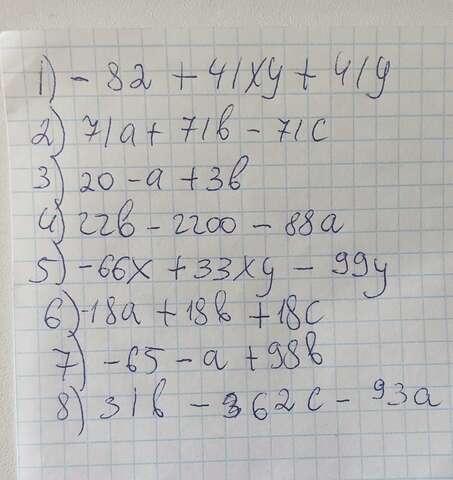 1) - 82 + 41xy + 41y
2) 71a + 71в - 71c
3) 20 - a + 3в
4) 22в - 2200 - 88a
5) -66x + 33xy - 99y
6) -18a + 18в + 18c
7) -65 - a + 98в
8) 31в - 362c - 93a